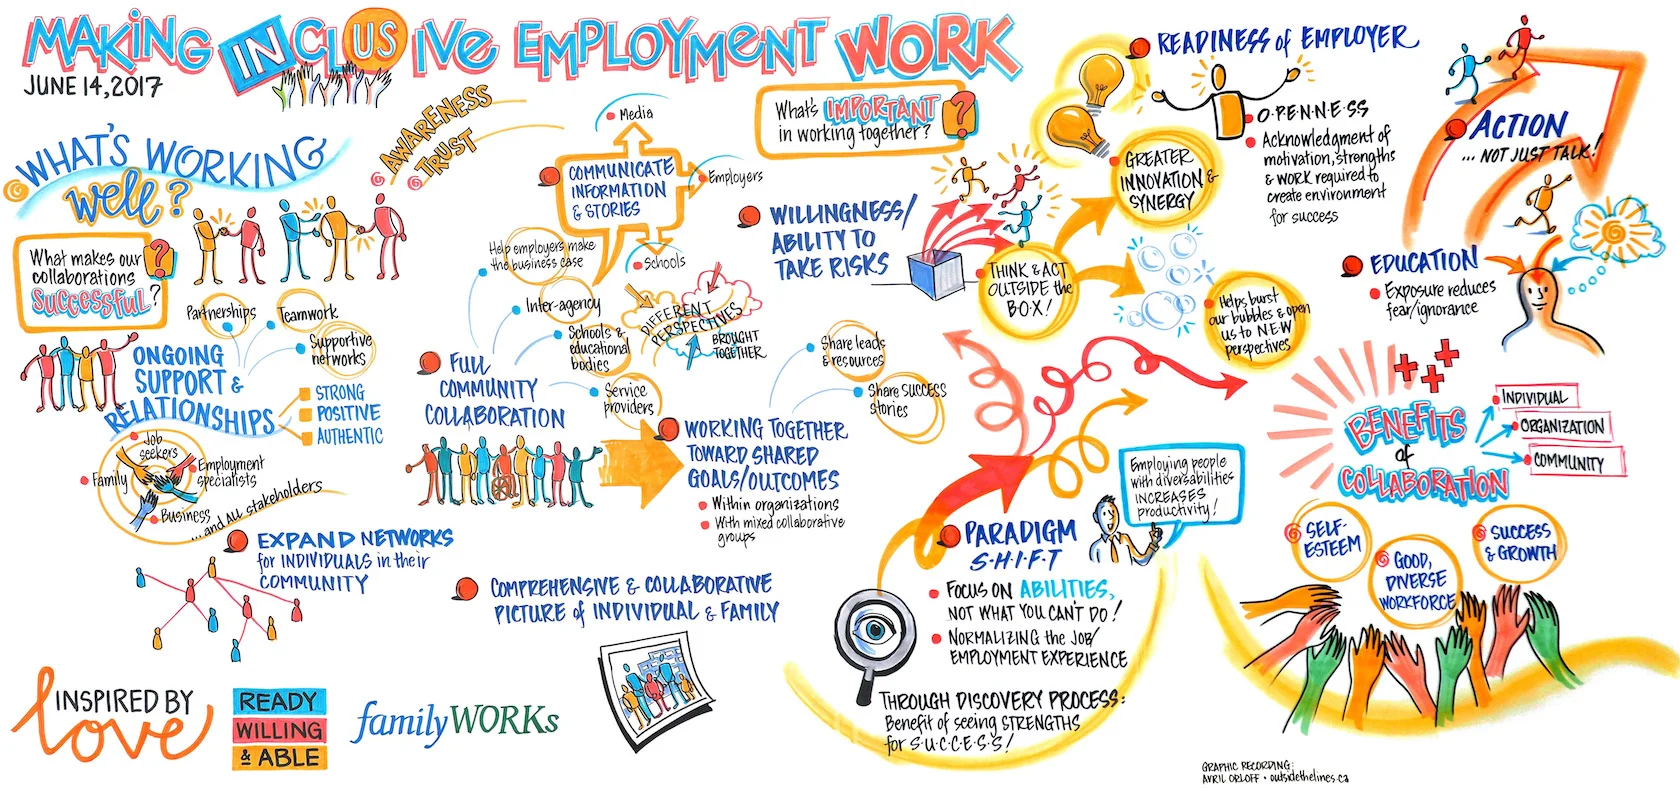 MAKING INCLUSIVE EMPLOYMENT WORK
JUNE 14, 2017
WHAT'S WORKING
Well?
What makes our
collaborations
SUCCESSFUL?
?
AWARENESS
TRUST
Partnerships
Teamwork
Supportive
networks
ONGOING
SUPPORT &
RELATIONSHIPS
STRONG
POSITIVE
AUTHENTIC
Job
seekers
Family
Employment
specialists
Business
...and ALL stakeholders
EXPAND NETWORKS
for INDIVIDUALS in their
COMMUNITY
INSPIRED BY
love
READY
WILLING
& ABLE
familyWORKs
Media
COMMUNICATE
INFORMATION
& STORIES
Employers
Schools
Help employers make
the business case
Inter-agency
Schools &
educational
bodies
Service
providers
DIFFERENT
PERSPECTIVES
BROUGHT
TOGETHER
FULL
COMMUNITY
COLLABORATION
Share leads
& resources
Share SUCCESS
stories
WORKING TOGETHER
TOWARD SHARED
GOALS/OUTCOMES
Within organizations
With mixed collaborative
groups
COMPREHENSIVE & COLLABORATIVE
PICTURE of INDIVIDUAL & FAMILY
What's IMPORTANT
in working together?
?
WILLINGNESS/
ABILITY TO
TAKE RISKS
THINK & ACT
OUTSIDE the
B.O.X!
GREATER
INNOVATION &
SYNERGY
Helps burst
our bubbles & open
us to N.E.W
perspectives
READINESS of EMPLOYER
O.P.E.N.N.E.S.S
Acknowledgment of
motivation, strengths
& WORK required to
create environment
for success
ACTION
... NOT JUST TALK!
EDUCATION
Exposure reduces
fear/ignorance
PARADIGM
S.H.I.F.T
FOCUS ON ABILITIES,
NOT WHAT YOU CAN'T DO!
NORMALIZING the JOB/
EMPLOYMENT EXPERIENCE
THROUGH DISCOVERY PROCESS:
Benefit of seeing STRENGTHS
for S.U.C.C.E.S.S!
Employing people
with diversabilities
INCREASES
productivity!
BENEFITS
of
COLLABORATION
INDIVIDUAL
ORGANIZATION
COMMUNITY
SELF-
ESTEEM
GOOD,
DIVERSE
WORKFORCE
SUCCESS
& GROWTH
GRAPHIC RECORDING:
AVRIL ORLOFF • outsidethelines.ca